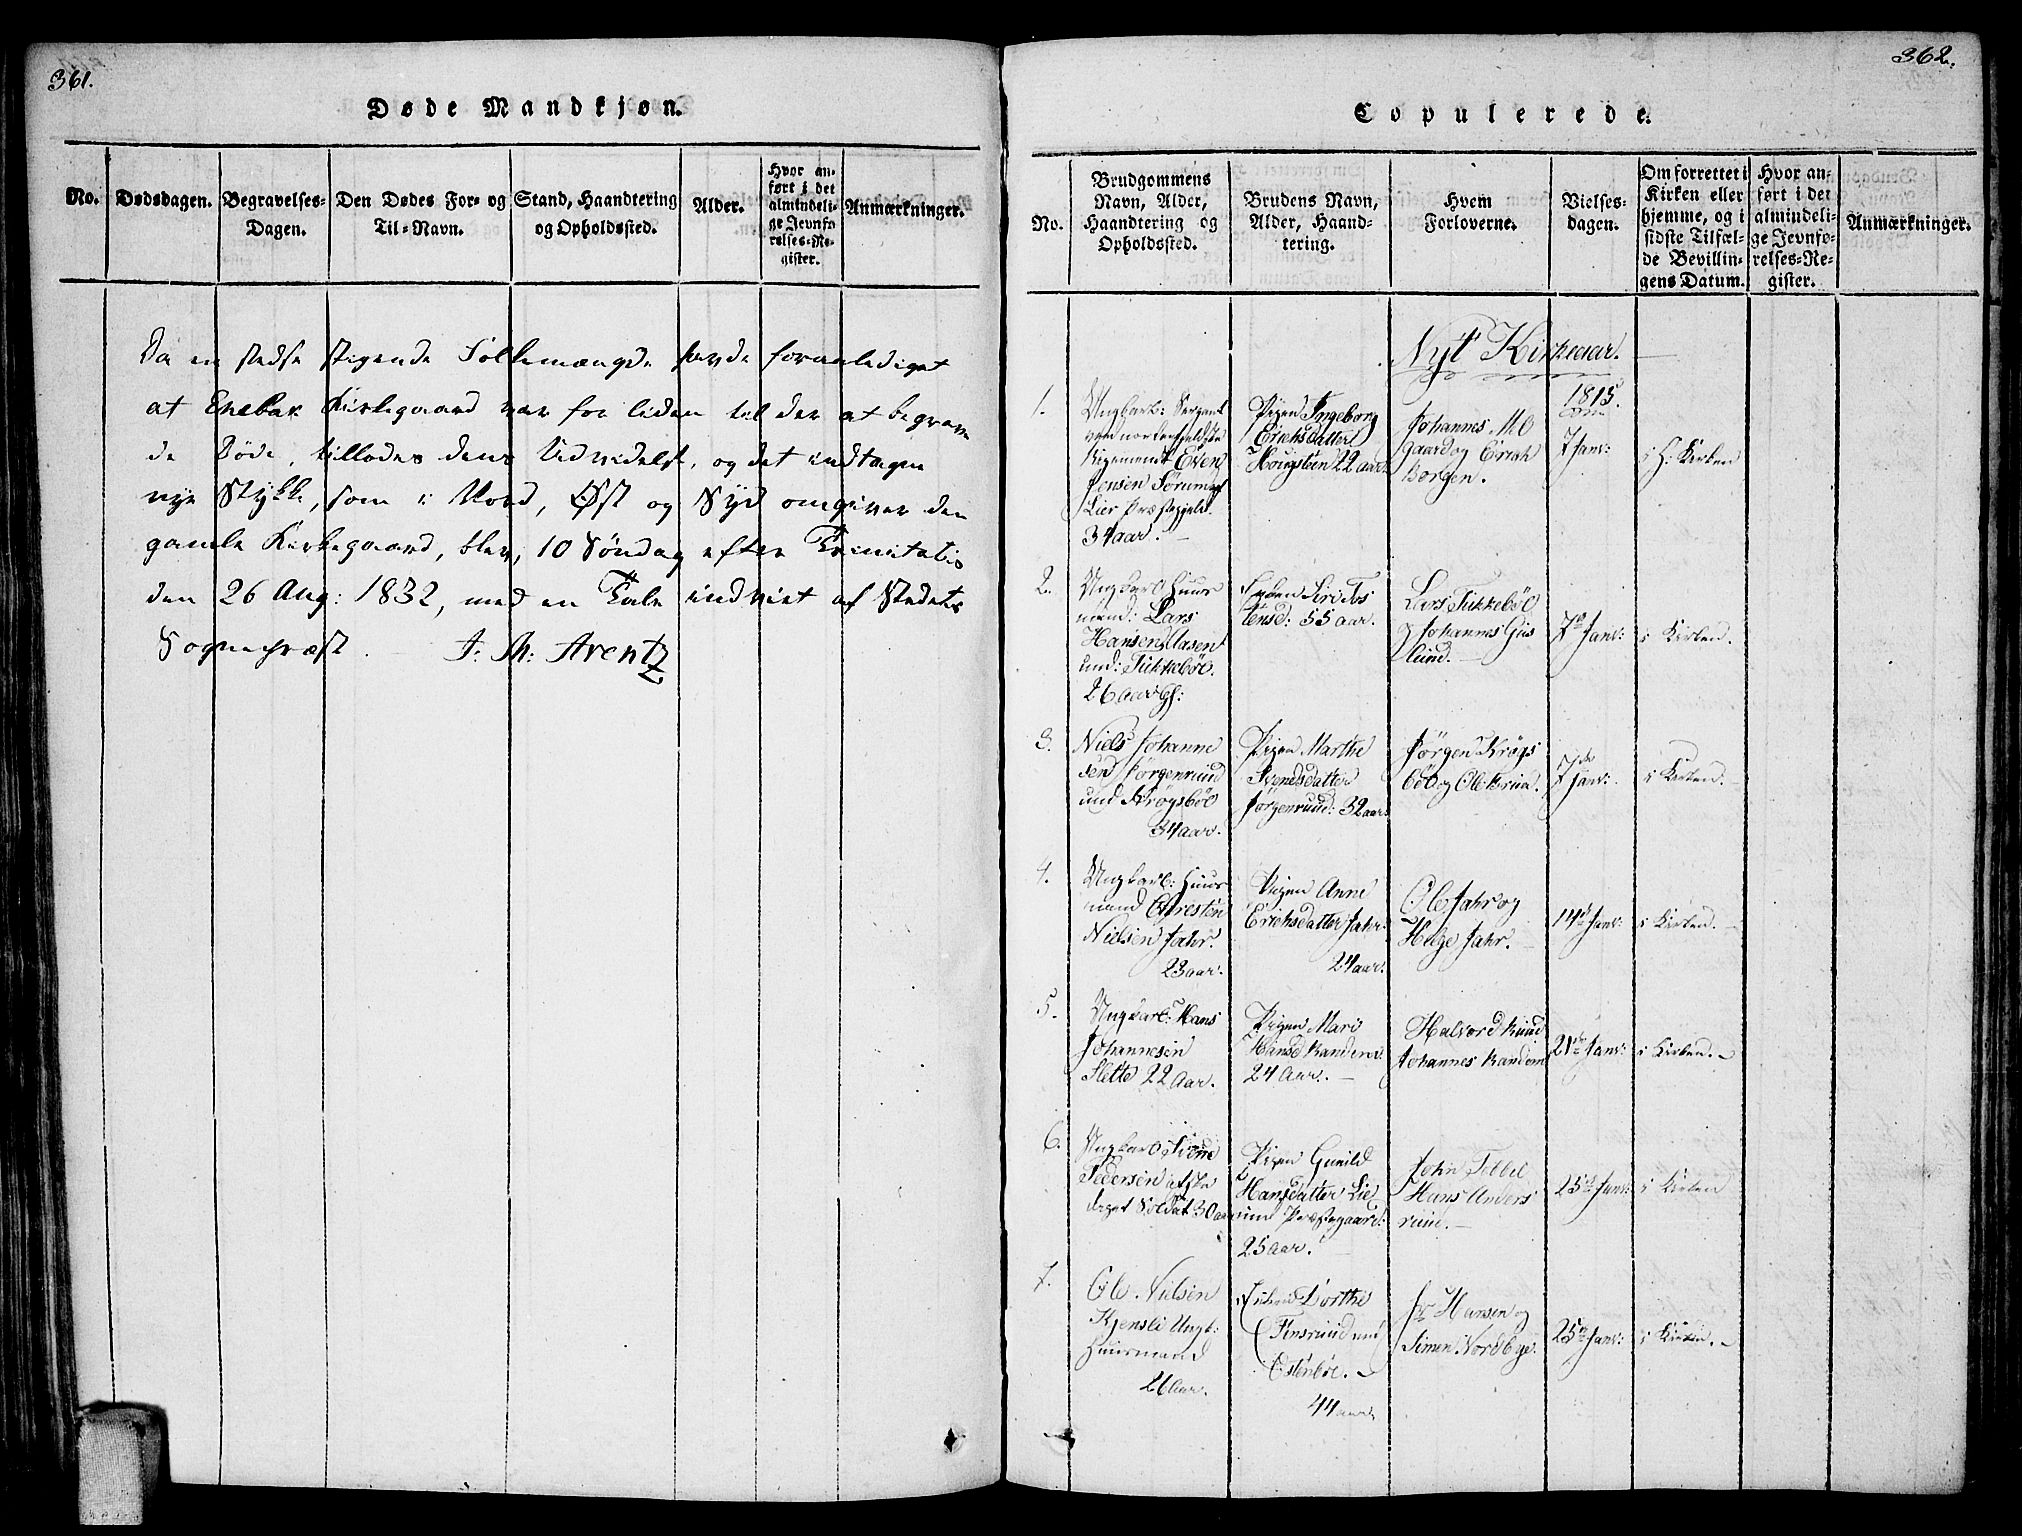 361.
Døde Mandkjøn.
No.
Dødsdagen.
Begravelses-
Dagen.
Den Dødes For- og
Til-Navn.
Stand, Haandtering
og Opholdssted.
Alder.
Hvor an-
ført i det
almindeli-
ge Jevnfø-
relses-Re-
gister.
Anmærkninger.
Da en stedse stigende Folkemængde havde foranlediget
at Enebak Kirkegaard var for liden til der at begrave
de Døde, tillodes dens Udvidelse, og det indtagne
nye Stykke, som i Nord, Øst og Syd omgiver den
gamle Kirkegaard, blev, 10 Søndag efter Trinitatis
den 26 Aug: 1832, med en Tale indviet af Stedets
Sognepræst
J: M: Arentz
362.
Copulerede.
No.
Brudgommens
Navn, Alder,
Haandtering og
Opholdssted.
Brudens Navn,
Alder, Haand-
tering.
Hvem
Forloverne.
Vielses-
dagen.
Om forrettet i
Kirken eller
hjemme, og i
sidste Tilfæl-
de Bevillin-
gens Datum.
Hvor an-
ført i det
almindeli-
ge Jevnfø-
relses-Re-
gister.
Anmærkninger.
Nyt Kirkeaar.
1815.
1.
Ungkarl: Sergent
ved nordenfieldske
Regimendt Even
Jensen Sørum af
Lier Præstegield.
34 aar.
Pigen Ingeborg
Erichsdatter
22 aar.
Johannes Mo
gaard og Erich
Borgen.
7 Janv:
i H: Kirken
2.
Ungkarl Huus
mand: Lars
Hansen
und: Tukkebøl
26 aar
Siri Tos
tensd: 55 aar.
Lars Tukkebøl
og Johannes Gis
lund.
7de Janv:
i Kirken.
3.
Niels Johanne
sen Jørgenrud
und Krogsbøl
34 aar.
Pigen Marthe
Svendsdatter
Jørgenruud: 32 aar
Jørgen Krogs
bøl og Ole
7de Janv:
i Kirken.
4.
Ungkarl: Huus
mand Christen
Nielsen Jahr.
23 aar.
Pigen Anne
Erichsdatter Jahr
24 aar.
Ole Jahr og
Helge Jahr.
14d Janv:
i Kirken.
5.
Ungkarl: Hans
Johannesen
Slette 22 Aar.
Pigen Mari
Hansd Randem
24 Aar.
Halvord Ruud
Johannes Randem
21de Janv:
i Kirken.
6.
Ungkarl
Pedersen afske
diget Soldat 30 aar
Pigen Gunild
Hansdatter Lie
und Præstegaard:
25 Aar.
John
Hans Anders
ruud.
25de Janv:
i Kirken
7.
Ole Nielsen
Kjensli Ungk:
Huusmand
26 Aar.
Enken Dorthe
Finsruud und
Østenbøe.
44 aar
Hansen og
Simen Nordbye.
25de Janv:
i Kirken.